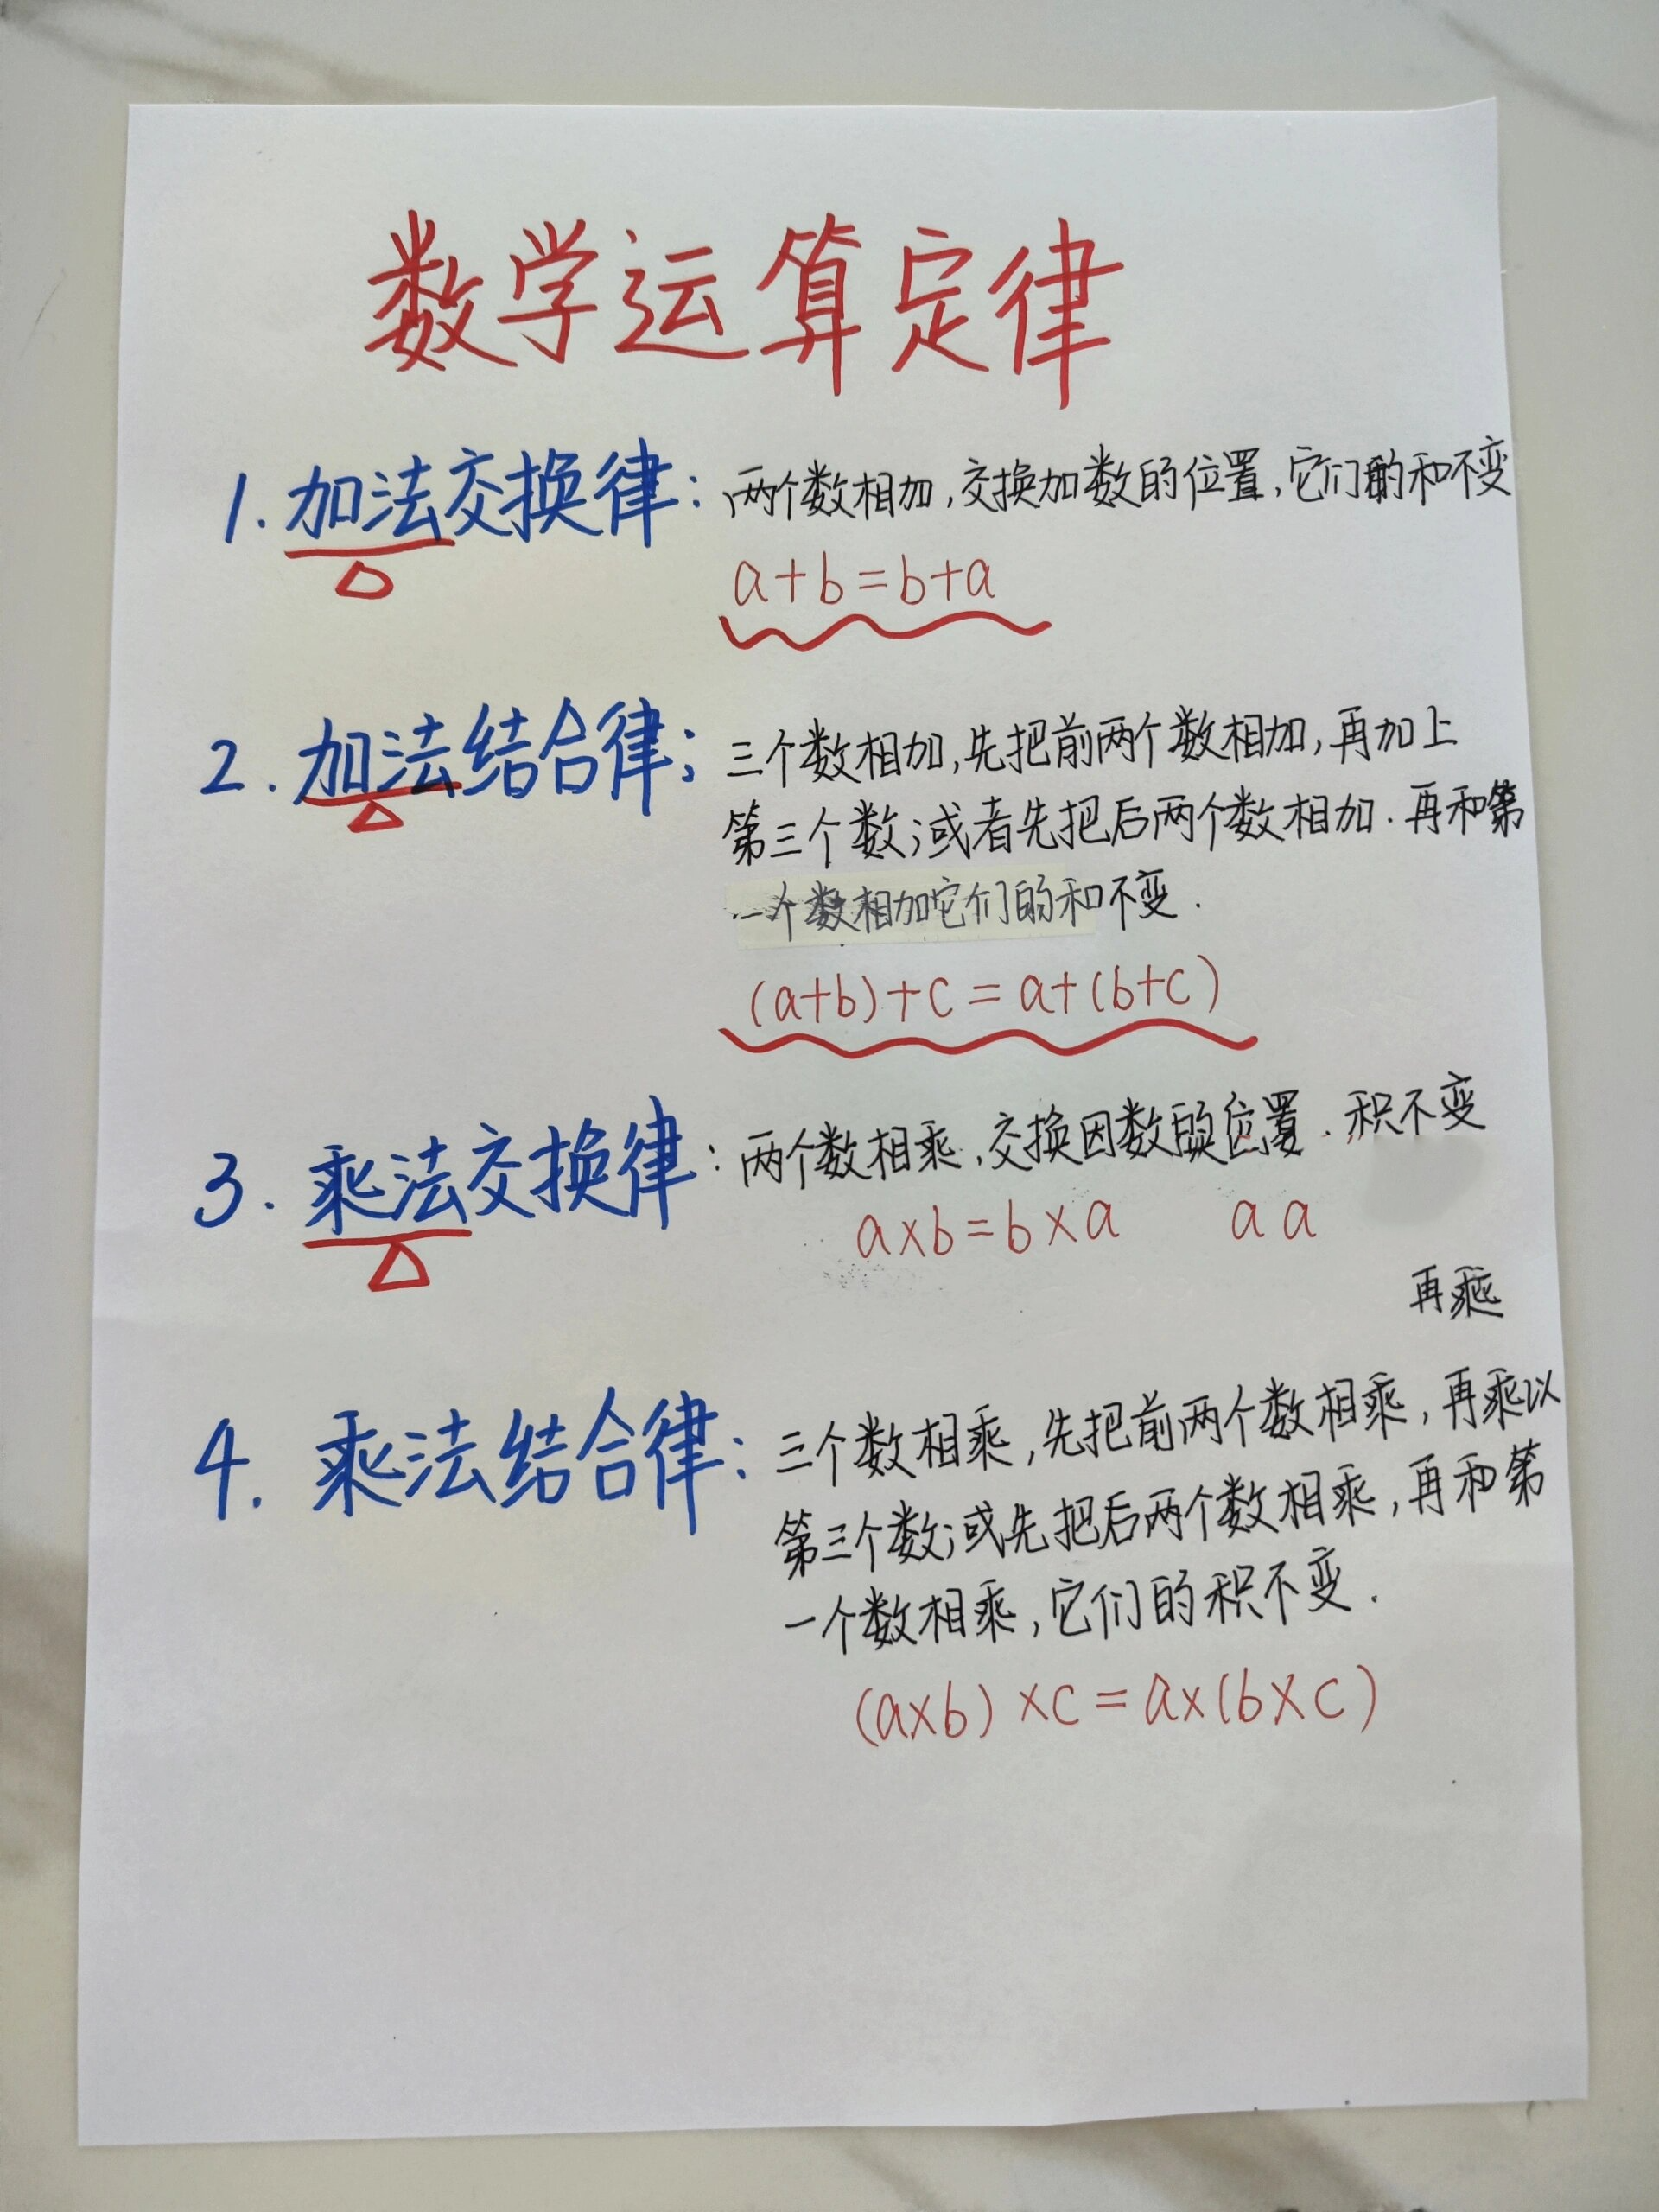 数学运算定律
1. 加法交换律: 两个数相加,交换加数的位置,它们的和不变
a+b=b+a
2. 加法结合律; 三个数相加,先把前两个数相加,再加上
第三个数;或者先把后两个数相加.再和第
一个数相加它们的和不变.
(a+b)+c=a+(b+c)
3. 乘法交换律: 两个数相乘,交换因数的位置.积不变
a×b=b×a a a
再乘
4. 乘法结合律: 三个数相乘,先把前两个数相乘,再乘以
第三个数;或先把后两个数相乘,再和第
一个数相乘,它们的积不变.
(a×b)×c=a×(b×c)